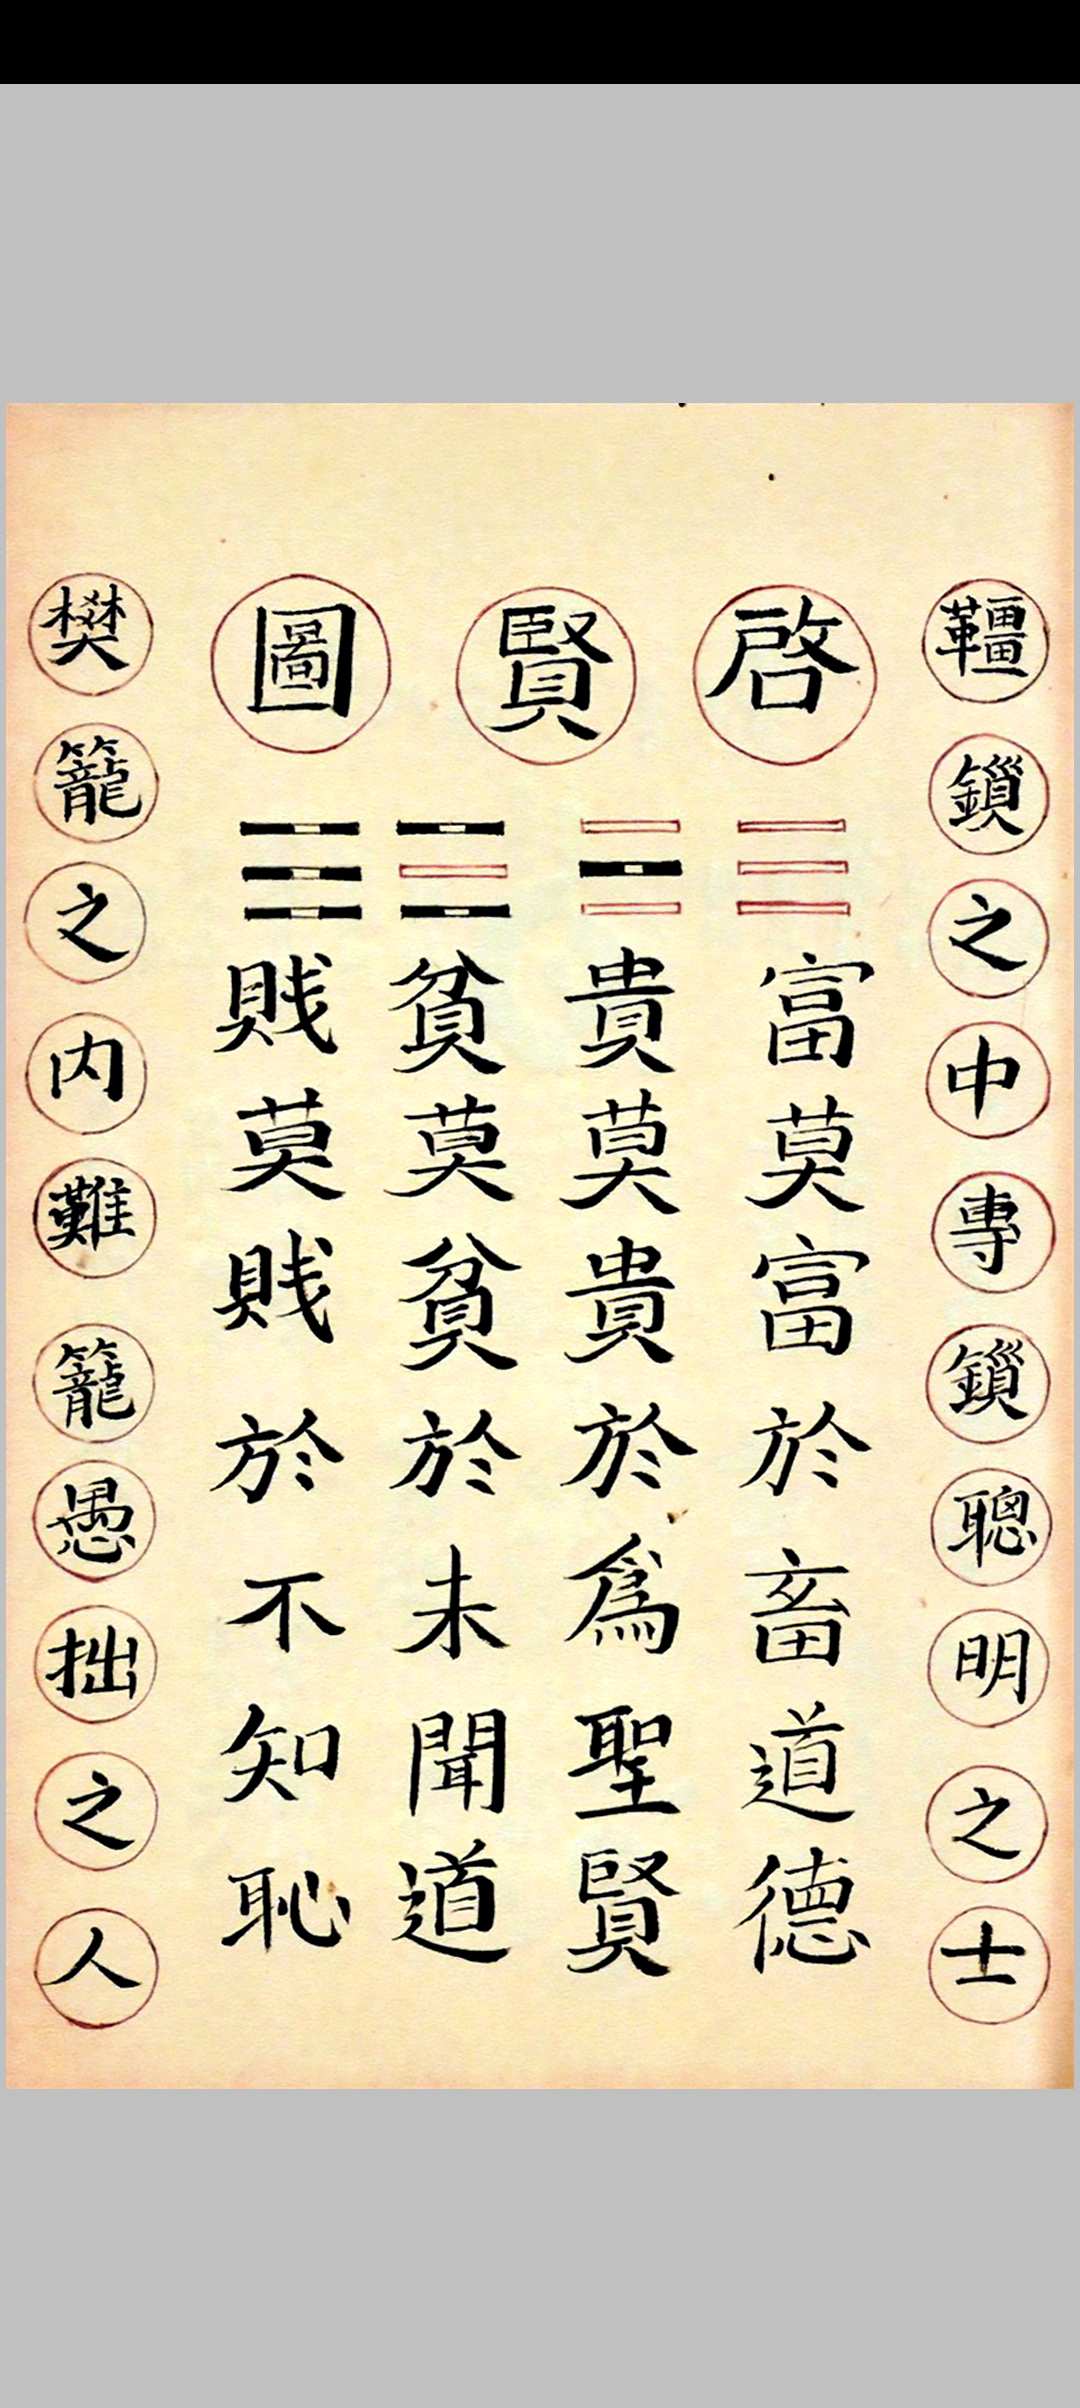 韁鎖之中專鎖聰明之士
啓賢圖
富莫富於畜道德
貴莫貴於爲聖賢
貧莫貧於未聞道
賎莫賎於不知恥
樊籠之内難籠愚拙之人